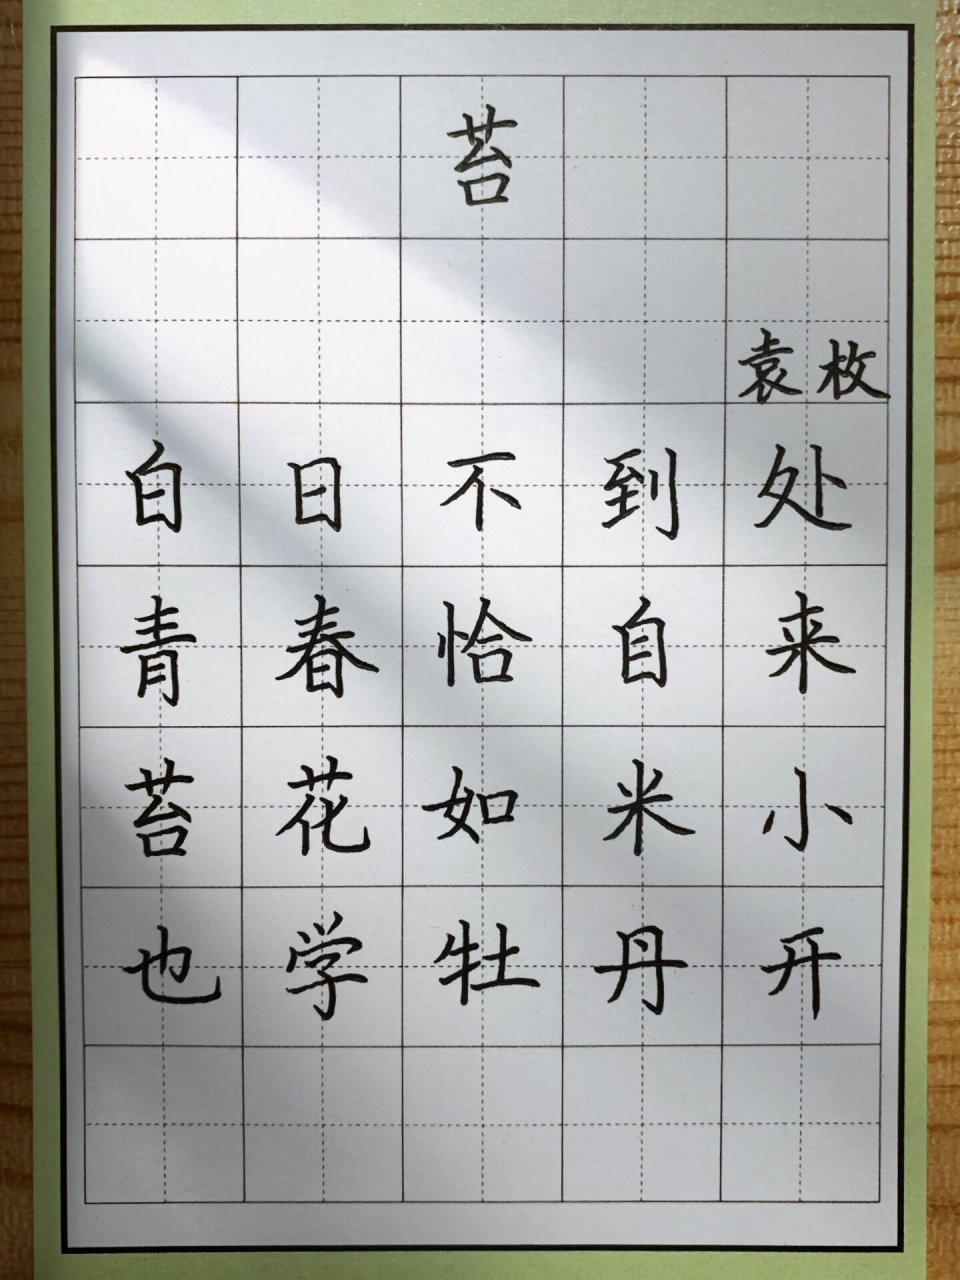 苔
袁枚
白日不到处
青春恰自来
苔花如米小
也学牡丹开